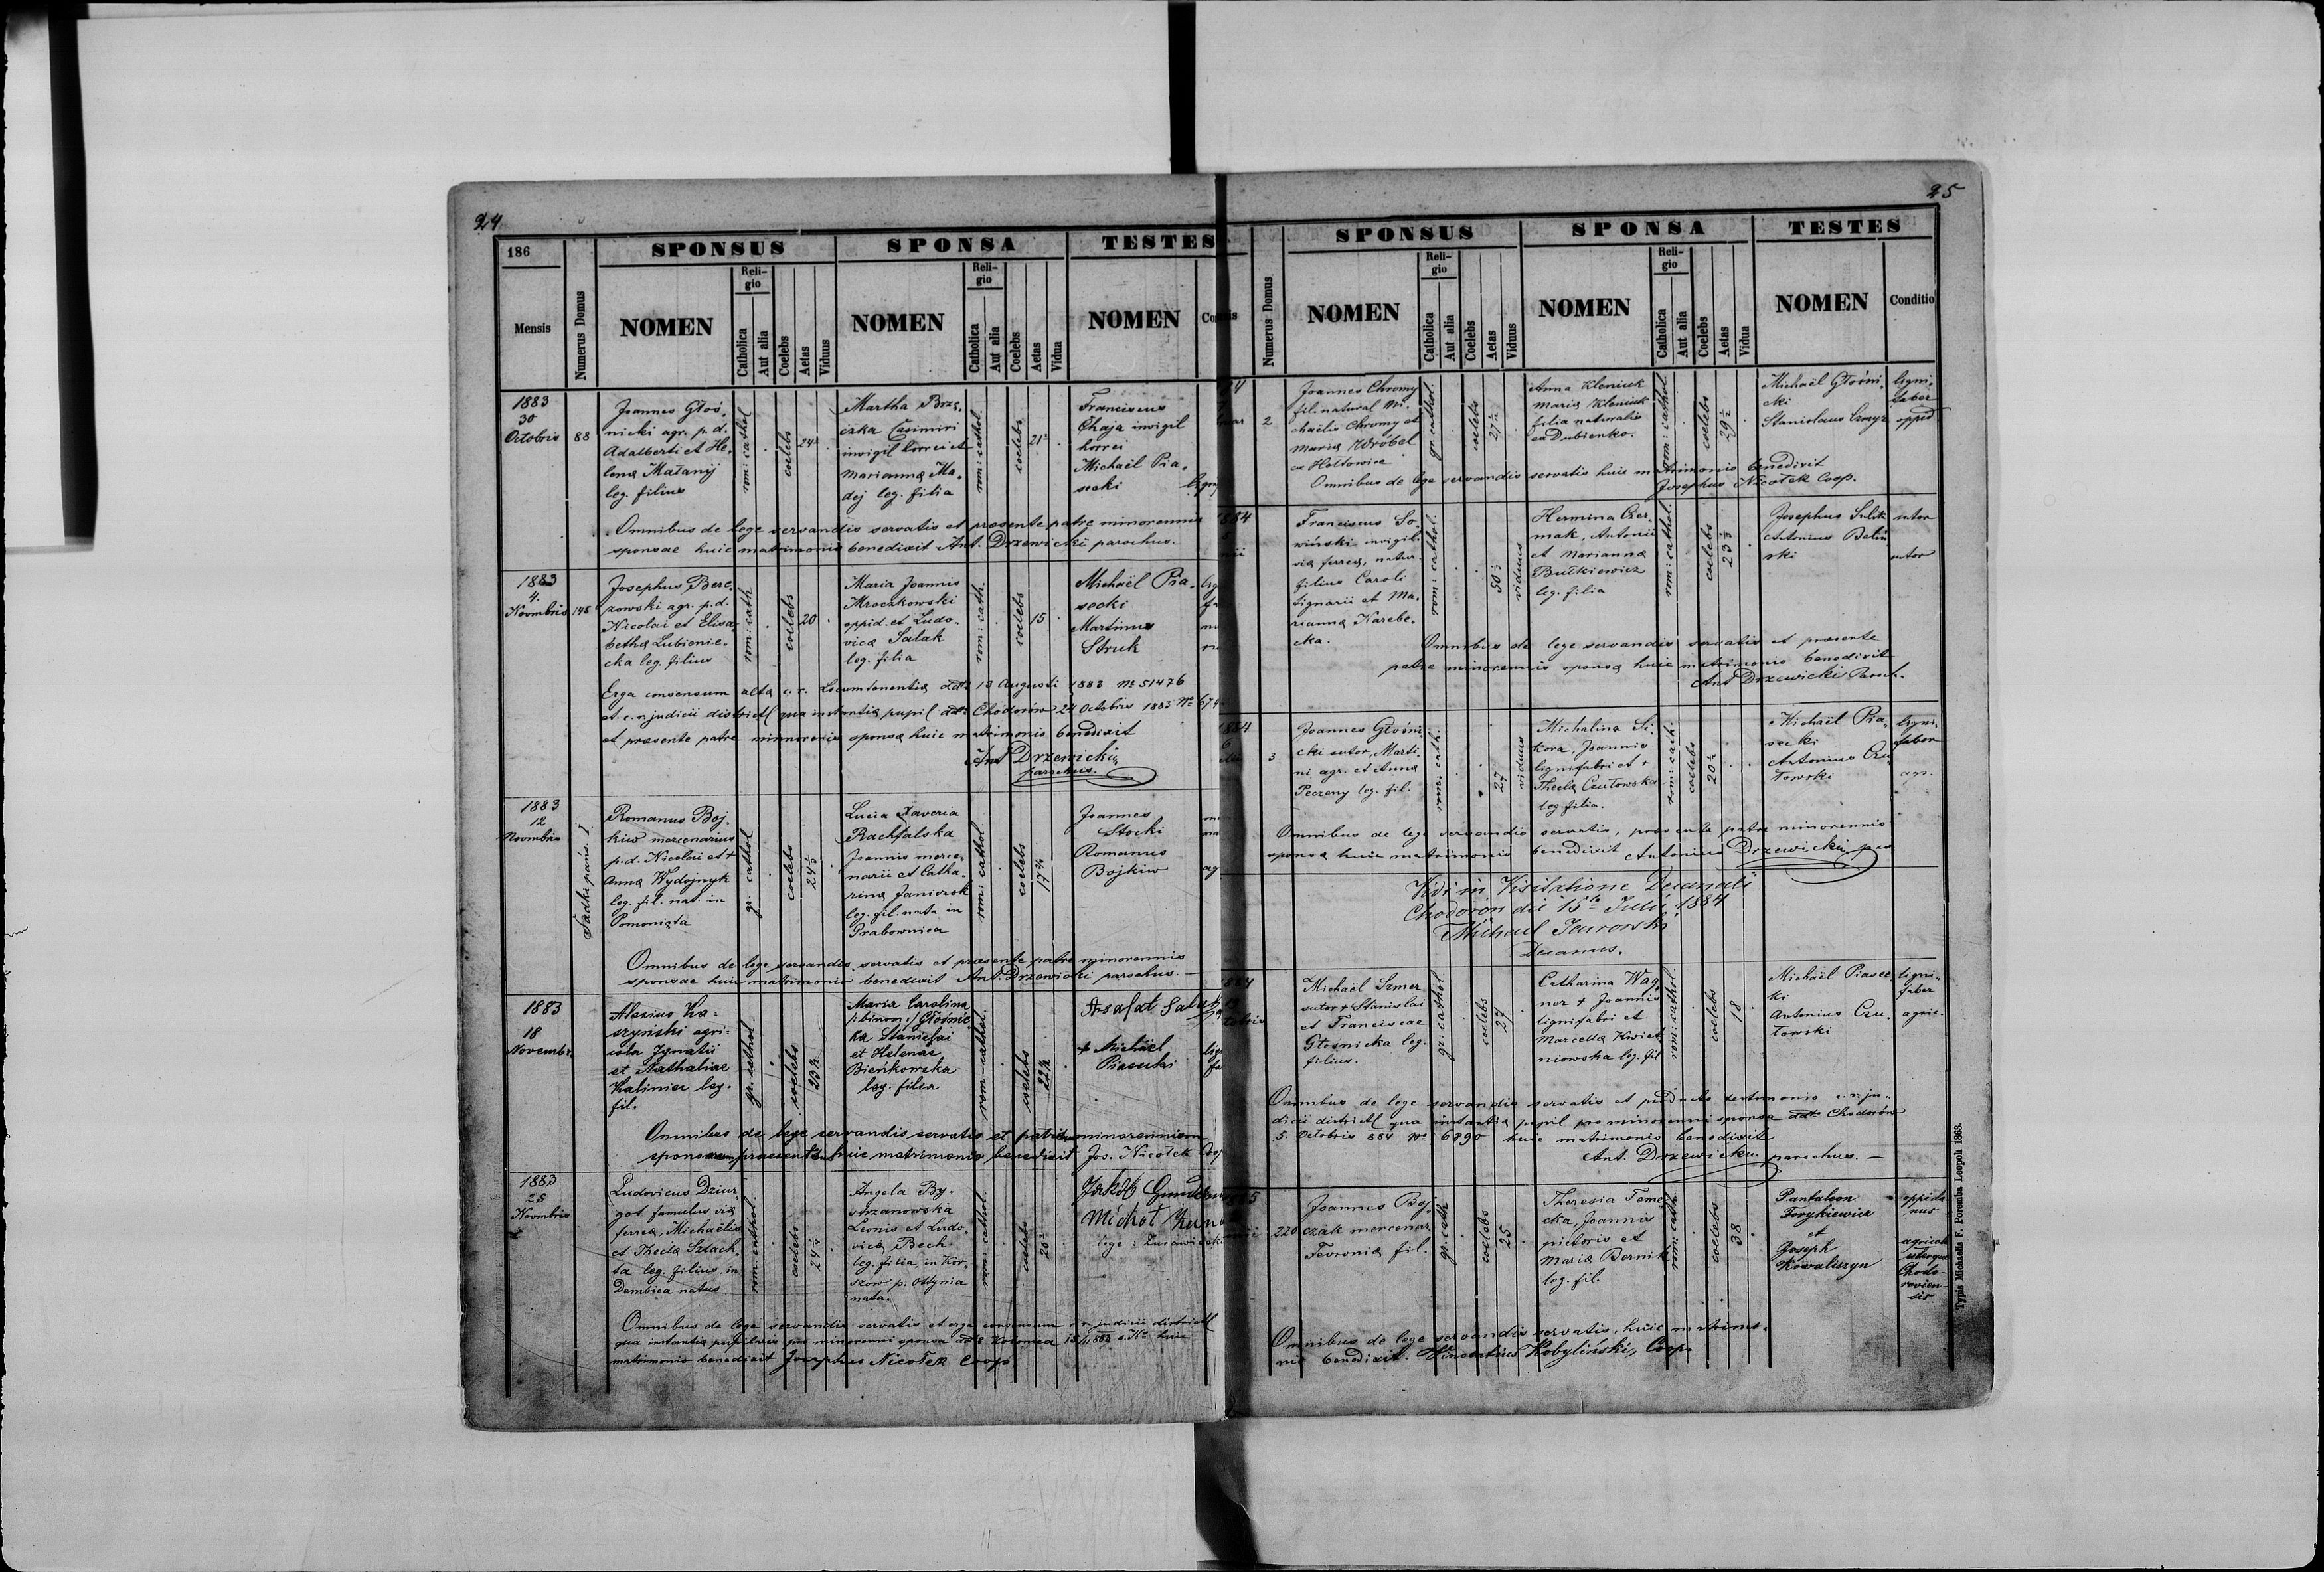 24
186
SPONSUS
SPONSA
TESTES
Mensis
Numerus Domus
NOMEN
Religio
Catholica
Aut alia
Coelebs
Aetas
Viduus
NOMEN
Religio
Catholica
Aut alia
Coelebs
Aetas
Vidua
NOMEN
1883
30
Octobris
88
Joannes Głoś-
nicki agr. p.d.
Adalberti et He-
lena Małanij
leg. filius
rom: cathol
coelebs
24
Martha Brzę-
czka Casimiri
invigil horrei et
Marianna Ma-
dej leg. filia
rom: cathol.
coelebs
21
Franciscus
Chaja invigil
horrei
Michaël Pia-
secki
Omnibus de lege servandis servatis et praesente patre minorennis
sponsae huic matrimonio benedixit Ant. Drzewicki parochus.
1883
4.
Novmbris
148
Josephus Bere-
zowski agr. p.d.
Nicolai et Elisa-
betha Lubienie-
cka leg. filius
rom: cath
coelebs
20
Maria Joannis
Mroczkowski
oppid. et Ludo-
vica Salak
leg. filia
rom: cath.
coelebs
15
Michaël Pia-
secki
Martinus
Struk
Erga consensum alta c. r. Locumtenentia ddto 13 Augusti 1883 No 51476
et c. r. judicii district qua instantia pupil ddto Chodorów 24 Octobris 1883 No 679
et praesente patre minorennis sponsa huic matrimonio benedixit
Ant Drzewicki
parochus.
1883
12
Novmbris
Romanus Boj-
kiw mercenarius
p.d. Nicolai et +
Anna Wydojnyk
leg. fil. nat. in
Pomonięta
gr. cathol
coelebs
24
Lucia Xaveria
Rachfalska
Joannis merce-
narii et Catha-
rina Janiczek
leg. fil. nata in
Grabownica
rom: cathol
coelebs
17
Joannes
Stocki
Romanus
Bojkiw
Omnibus de lege servandis servatis et praesente patre minorennis
sponsae huic matrimonio benedixit Ant. Drzewicki parochus.
1883
18
Novembr.
Alexius Ka-
szyński agri-
cola Ignatii
et Nathaliae
Kalinier leg.
fil.
gr. cathol.
coelebs
23 ½
Maria Carolina
Głośnic-
ka Stanislai
et Helenae
Bieńkowska
leg. filia
rom-cathol.
coelebs
22
Michäel
Piasecki
Omnibus de lege servandis servatis et patre minorennem
huic matrimonio benedixit Jos. Nicołek
1883
25
Novmbris
Ludovicus Dziur-
got famulus via
ferrea, Michaëlis
et Thecla Szlach-
ta leg. filius in
Dembica natus
rom: cathol.
coelebs
24
Angela By-
strzanowska
Leonis et Ludo-
vica Bech
leg. filia in Kor-
szów p. Ottynia
nata.
rom: cathol.
coelebs
20
Jakób
Michał
Omnibus de lege servandis servatis et erga consensum c. r. judicii district
qua instantia pupilaris pro minorenni sponsa ddto Kołomea 1883 huic
matrimonio benedixit Josephus Nicołek Coop.
25
SPONSUS
SPONSA
TESTES
Numerus Domus
NOMEN
Religio
Catholica
Aut alia
Coelebs
Aetas
Viduus
NOMEN
Religio
Catholica
Aut alia
Coelebs
Aetas
Vidua
NOMEN
Conditio
2
Joannes Chromy
fil. natural Mi-
chaëlis Chromy et
Maria Wróbel
ex Hołtowice
gr. cathol.
coelebs
27 ½
Anna Kleniuk
Maria Kleniuk
filia naturalis
ex Dubienko.
rom: cathol.
coelebs
29 ½
Michaël Głośni-
cki
Stanislaus Szmyr
ligni-
faber
oppid
Omnibus de lege servandis servatis huic matrimonio benedixit
Josephus Nicołek Coop.
1884
Franciscus So-
wiński invigil.
via ferrea, natur.
filius Caroli
lignarii et Ma-
rianna Karebe-
cka.
rom: cathol.
50
viduus
Hermina Czer-
mak, Antonii
et Marianna
Bućkiewicz
leg. filia
rom: cathol.
coelebs
23
Josephus Sulik
Antonius Baliń-
ski
sutor
sutor
Omnibus de lege servandis servatis et praesente
patre minorennis sponsa huic matrimonio benedixit
Ant Drzewicki Paroch.
1884
3
Joannes Głośni-
cki sutor, Marti-
ni agr. et Anna
Peczeny leg. fil.
rom: cath.
27
viduus
Michalina Si-
kora, Joannis
lignifabri et +
Thecla Czułowska
leg. filia.
rom: cath:
coelebs
20
Michaël Pia-
secki
Antonius Czu-
łowski
ligni-
faber
agr.
Omnibus de lege servandis servatis, praesente patre minorennis
sponsa huic matrimonio benedixit Antonius Drzewicki par
Vidi in Visitatione Decanali
Chodorów die 15ta Julii 1884
Michael
Decanus.
1884
Michaël Szmer
sutor + Stanislai
et Franciscae
Głośnicka leg.
filius.
gr. cathol.
coelebs
27
Catharina Wag-
ner + Joannis
lignifabri et
Marcella Kwiet-
niowska leg. fil
rom: cathol.
coelebs
18
Michaël Piasec-
ki
Antonius Czu-
łowski
ligni-
faber
agric.
Omnibus de lege servandis servatis et producto testimonio c. r. ju-
dicii district qua instantia pupil pro minorenni sponsa ddto Chodorów
5. Octobris 884 No 6890 huic matrimonio benedixit
Ant. Drzewicki parochus.
220
Joannes Boj-
czak mercenar.
Fevronia fil.
gr. cath
coelebs
25
Theresia Teme-
cka, Joannis
pictoris et
Maria Bernik
leg. fil.
rom: cath
coelebs
38
Pantaleon
Torykiewicz
et
Joseph
Kowaliszyn
oppida-
nus
agricola
uterque
Chodo-
rovien-
sis
Omnibus de lege servandis servatis, huic matrimo-
nio benedixit. Vincentius Kobyliński, Coop.
Typis Michaelis F. Poremba Leopoli 1863.